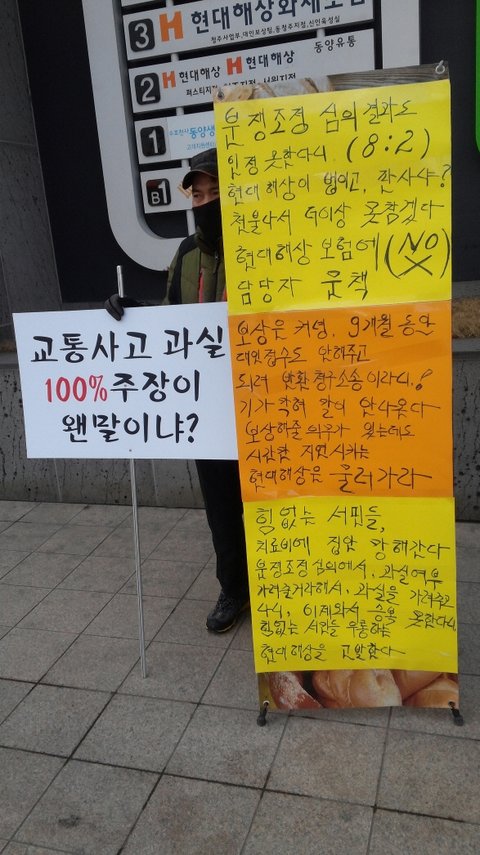 3 H 현대해상화재보험
청주사업부, 대인보상팀, 동청주지점, 신인육성실
2 H 현대해상 H 현대해상 동양유통
퍼스티지
1 동양생
고객지원센터
B1
분쟁조정 심의결과도
인정 못한다니. (8:2)
현대해상이 법이고, 판사냐?
천불나서 더이상 못참겠다
현대해상 보험에 (NO X)
담당자 문책
보상은 커녕, 9개월 동안
대인접수도 안해주고
되려 반환청구소송이라니!
기가 막혀 말이 안나온다
보상해줄 의무가 있는데도
시간만 지연시키는
현대해상은 물러가라
힘없는 서민들,
치료비에 집안 망해간다
분쟁조정심의에서, 과실여부
가려줄거라해서, 과실을 가려주고
나니, 이제와서 승복 못한다니
힘없는 서민들 우롱하는
현대해상을 고발한다
교통사고 과실
100% 주장이
왠말이냐?